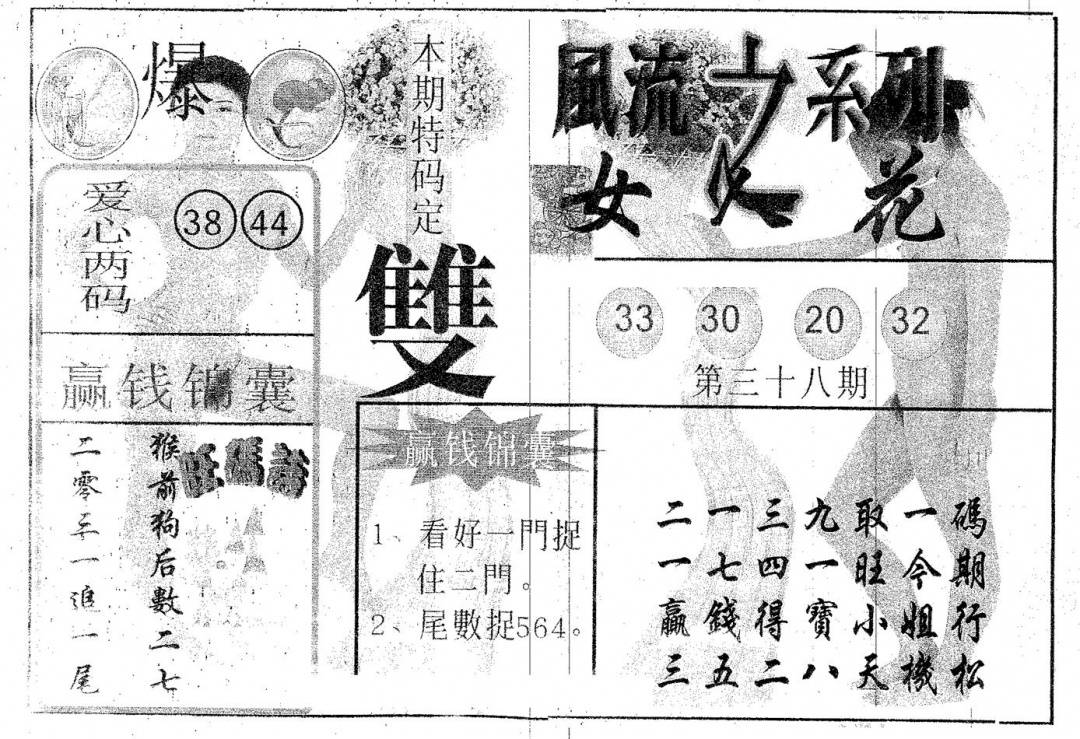 爆
爱心两码
38 44
赢钱锦囊
旺碼詩
猴前狗后數二七
二零三一追一尾
本期特码定
雙
風流之系列
女人花
33 30 20 32
第三十八期
赢钱锦囊
1、看好一門捉
住二門。
2、尾數捉564。
二一三九取一碼
一七四一旺今期
赢錢得寶小姐行
三五二八天機松